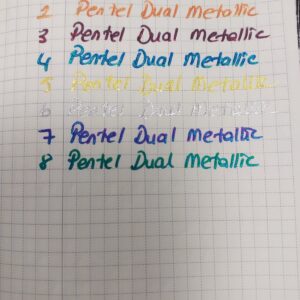 2 Pentel Dual Metallic
3 Pentel Dual Metallic
4 Pentel Dual Metallic
5 Pentel Dual Metallic
6 Pentel Dual Metallic
7 Pentel Dual Metallic
8 Pentel Dual Metallic